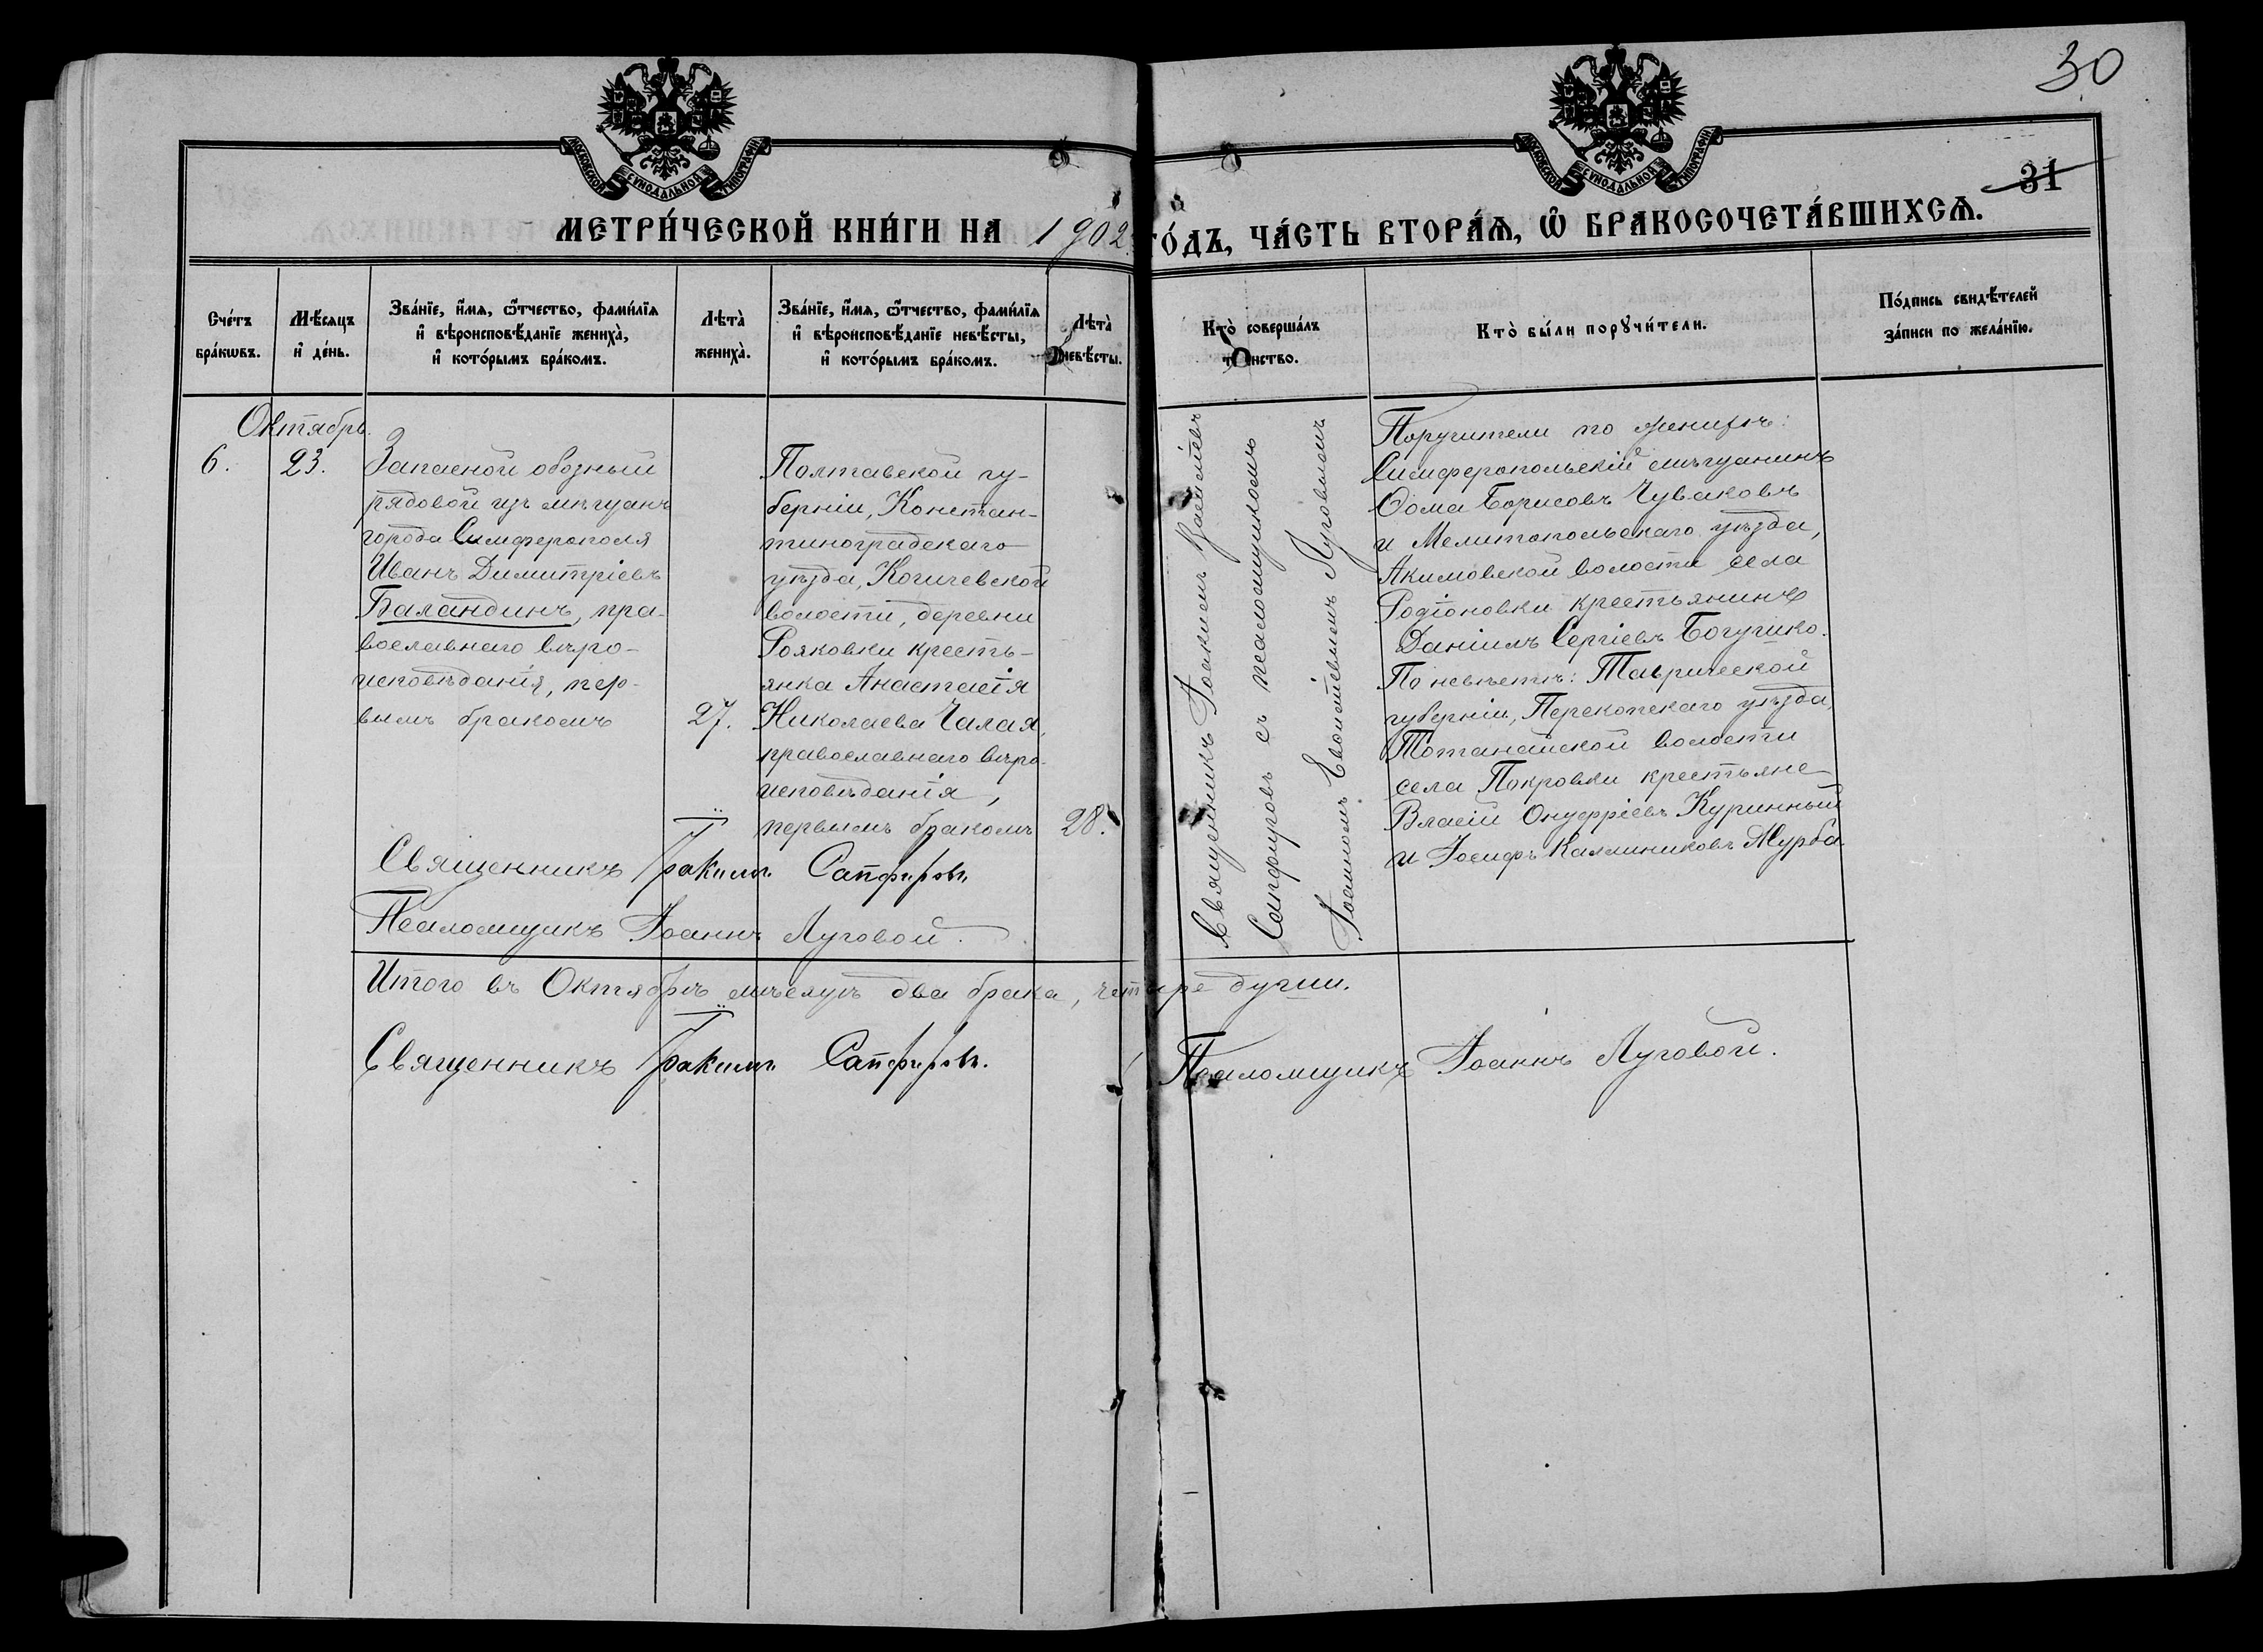 30
МОСКОВСКОЙ СѴНОДАЛЬНОЙ ТИПОГРАФІИ
МОСКОВСКОЙ СѴНОДАЛЬНОЙ ТИПОГРАФІИ
31
МЕТРИ́ЧЕСКОЙ КНИ́ГИ НА 1902 ГО́ДЪ, ЧА́СТЬ ВТОРА́Ѧ, Ѽ БРАКОСОЧЕТА́ВШИХСѦ.
Сче́тъ
бра́кѡвъ.
Мѣ́сяцъ
и҆ де́нь.
Зва́нїе, и҆́мѧ, ѻ҆́тчество, фами́лїѧ
и҆ вѣроисповѣ́данїе жениха̀,
и҆ кото́рымъ бра́комъ.
Лѣта̀
жениха̀.
Зва́нїе, и҆́мѧ, ѻ҆́тчество, фами́лїѧ
и҆ вѣроисповѣ́данїе невѣ́сты,
и҆ кото́рымъ бра́комъ.
Лѣта̀
невѣ́сты.
Кто̀ соверша́лъ
та́инство.
Кто̀ бы́ли порꙋчи́тели.
По́дпись свидѣ́телей
за́писи по жела́нїю.
Октябрь.
6.
23.
Запасной обозный
рядовой изъ мѣщанъ
города Симферополя
Иванъ Димитріевъ
Баландинъ, пра-
вославнаго вѣро-
исповѣданія, пер-
вымъ бракомъ
27.
Полтавской гу-
берніи, Констан-
тиноградскаго
уѣзда, Кегичевской
волости, деревни
Рояковки кресть-
янка Анастасія
Николаева Чалая,
православнаго вѣро-
исповѣданія,
первымъ бракомъ
28.
Священникъ Іоакимъ
Сапфировъ съ псаломщикомъ
Іоанномъ Луговымъ
Поручители по женихѣ:
Симферопольскій мѣщанинъ
Ѳома Борисовъ Чуваковъ
и Мелитопольскаго уѣзда,
Акимовской волости села
Родіоновки крестьянинъ
Даніилъ Сергіевъ
По невѣстѣ: Таврической
губерніи, Перекопскаго уѣзда,
волости
села Покровки крестьяне
Власій Онуфріевъ Куринный
и Іосифъ Каллиниковъ Журба
Священникъ Іоакимъ Сапфировъ
Псаломщикъ Іоаннъ Луговой.
Итого въ Октябрѣ мѣсяцѣ два брака, четыре души.
Священникъ Іоакимъ Сапфировъ.
Псаломщикъ Іоаннъ Луговой.